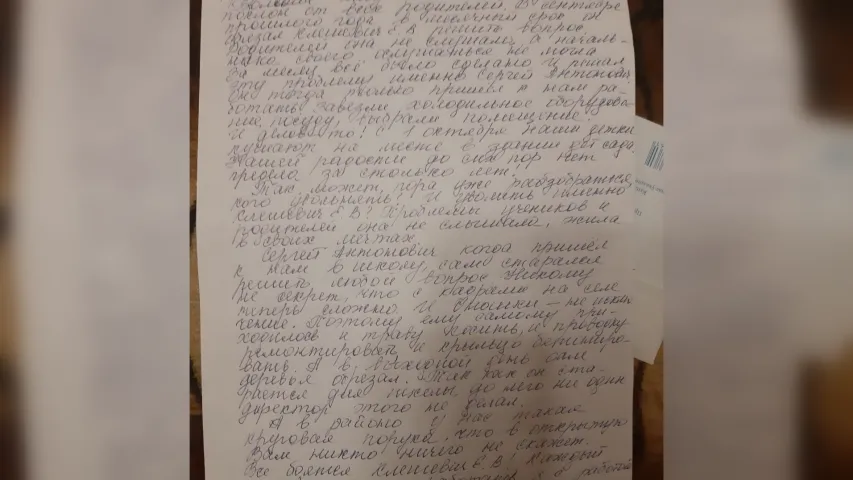 поклон от всех родителей. В сентябре
прошлого года в месячный срок он
обязал Клешевич Е.В решить вопрос.
Родителей она не слышала, а началь-
ника своего ослушаться не могла
За месяц всё было сделано и решал
эту проблему именно Сергей Антонович
он тогда только пришёл к нам ра-
ботать. Завезли холодильное оборудова-
ние, посуду, выбрали помещение.
И дело в то! С 1 октября наши детки
кушают на месте в здании дет сада.
Нашей радости до сих пор нет
предела за столько лет.
Так может, пора уже разобраться,
кого увольнять? И уволить именно
Клешевич Е.В? Проблемы учеников и
родителей она не слышала, жила
в своих мечтах.
Сергей Антонович, когда пришёл
к нам в школу, сам старался
решить любой вопрос. Никому
не секрет, что с кадрами на селе
теперь сложно. И - не исклю
чение. Поэтому ему самому при-
ходилось и траву косить, и проводку
ремонтировать, и крыльцо бетониро-
вать. А в выходной день сам
деревья обрезал. Так как он ста-
рается для школы, до него ни один
директор этого не делал.
А в районо у нас такая
круговая порука, что в открытую
Вам никто ничего не скажет.
Все боятся Клешевич Е.В! Каждый
работой